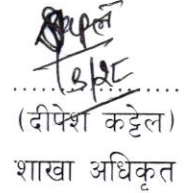 ५/२८
....................
(दीपेश कट्टेल)
शाखा अधिकृत